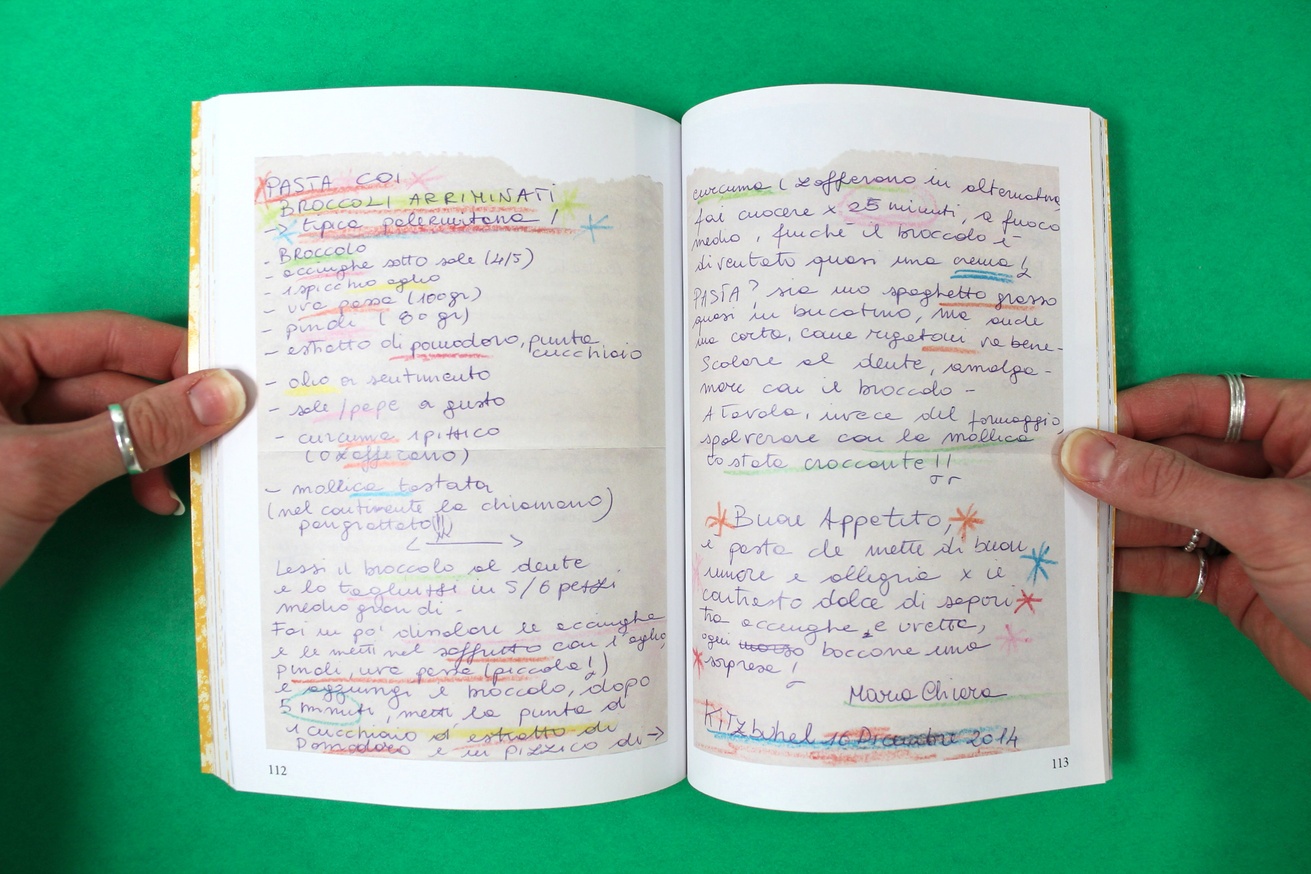 PASTA COI
BROCCOLI ARRIMINATI
→ tipica palermitana!
- BROCCOLO
- acciughe sotto sale (4/5)
- 1 spicchio aglio
- uva passa (100gr)
- pinoli (80 gr)
- estratto di pomodoro, punta
cucchiaio
- olio a sentimento
- sale/pepe a gusto
- curcuma 1 pizzico
(o zafferano)
- mollica tostata
(nel continente la chiamano)
pangrattato!!!
Lessi il broccolo al dente
e lo tagliuzzi in 5/6 pezzi
medio grandi -
Fai un po' dissalare le acciughe
e le metti nel soffritto con l'aglio,
pinoli, uva passa (piccola!)
e aggiungi il broccolo, dopo
5 minuti, metti la punta d
1 cucchiaio di estratto di
pomodoro e un pizzico di →
112
curcuma (zafferano in alternativa
fai cuocere x 25 minuti, a fuoco
medio, finché il broccolo è
diventato quasi una crema!
PASTA? sia uno spaghetto grosso
quasi un bucatino, ma anche
una corta, come rigatoni va bene-
Scolare al dente, amalga-
mare con il broccolo -
A Tavola, invece del formaggio,
spolverare con la mollica
tostata croccante!!
Buon Appetito,
e pasta che mette di buon
umore e allegria x il
contrasto dolce di sapori
tra acciughe e uvetta,
ogni boccone una
sorpresa!
Maria Chiara
Kitzbuhel 16 Dicembre 2014
113